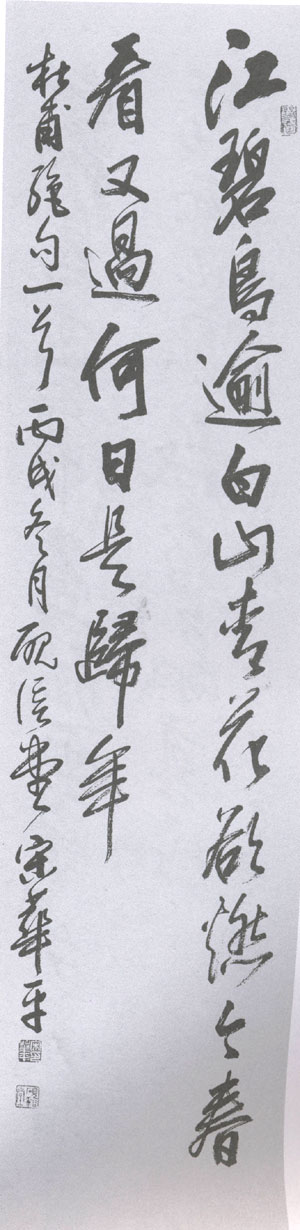 江碧鳥逾白山青花欲燃今春
看又過何日是歸年
杜甫絕句一首丙戌冬月醜石堂宋華平